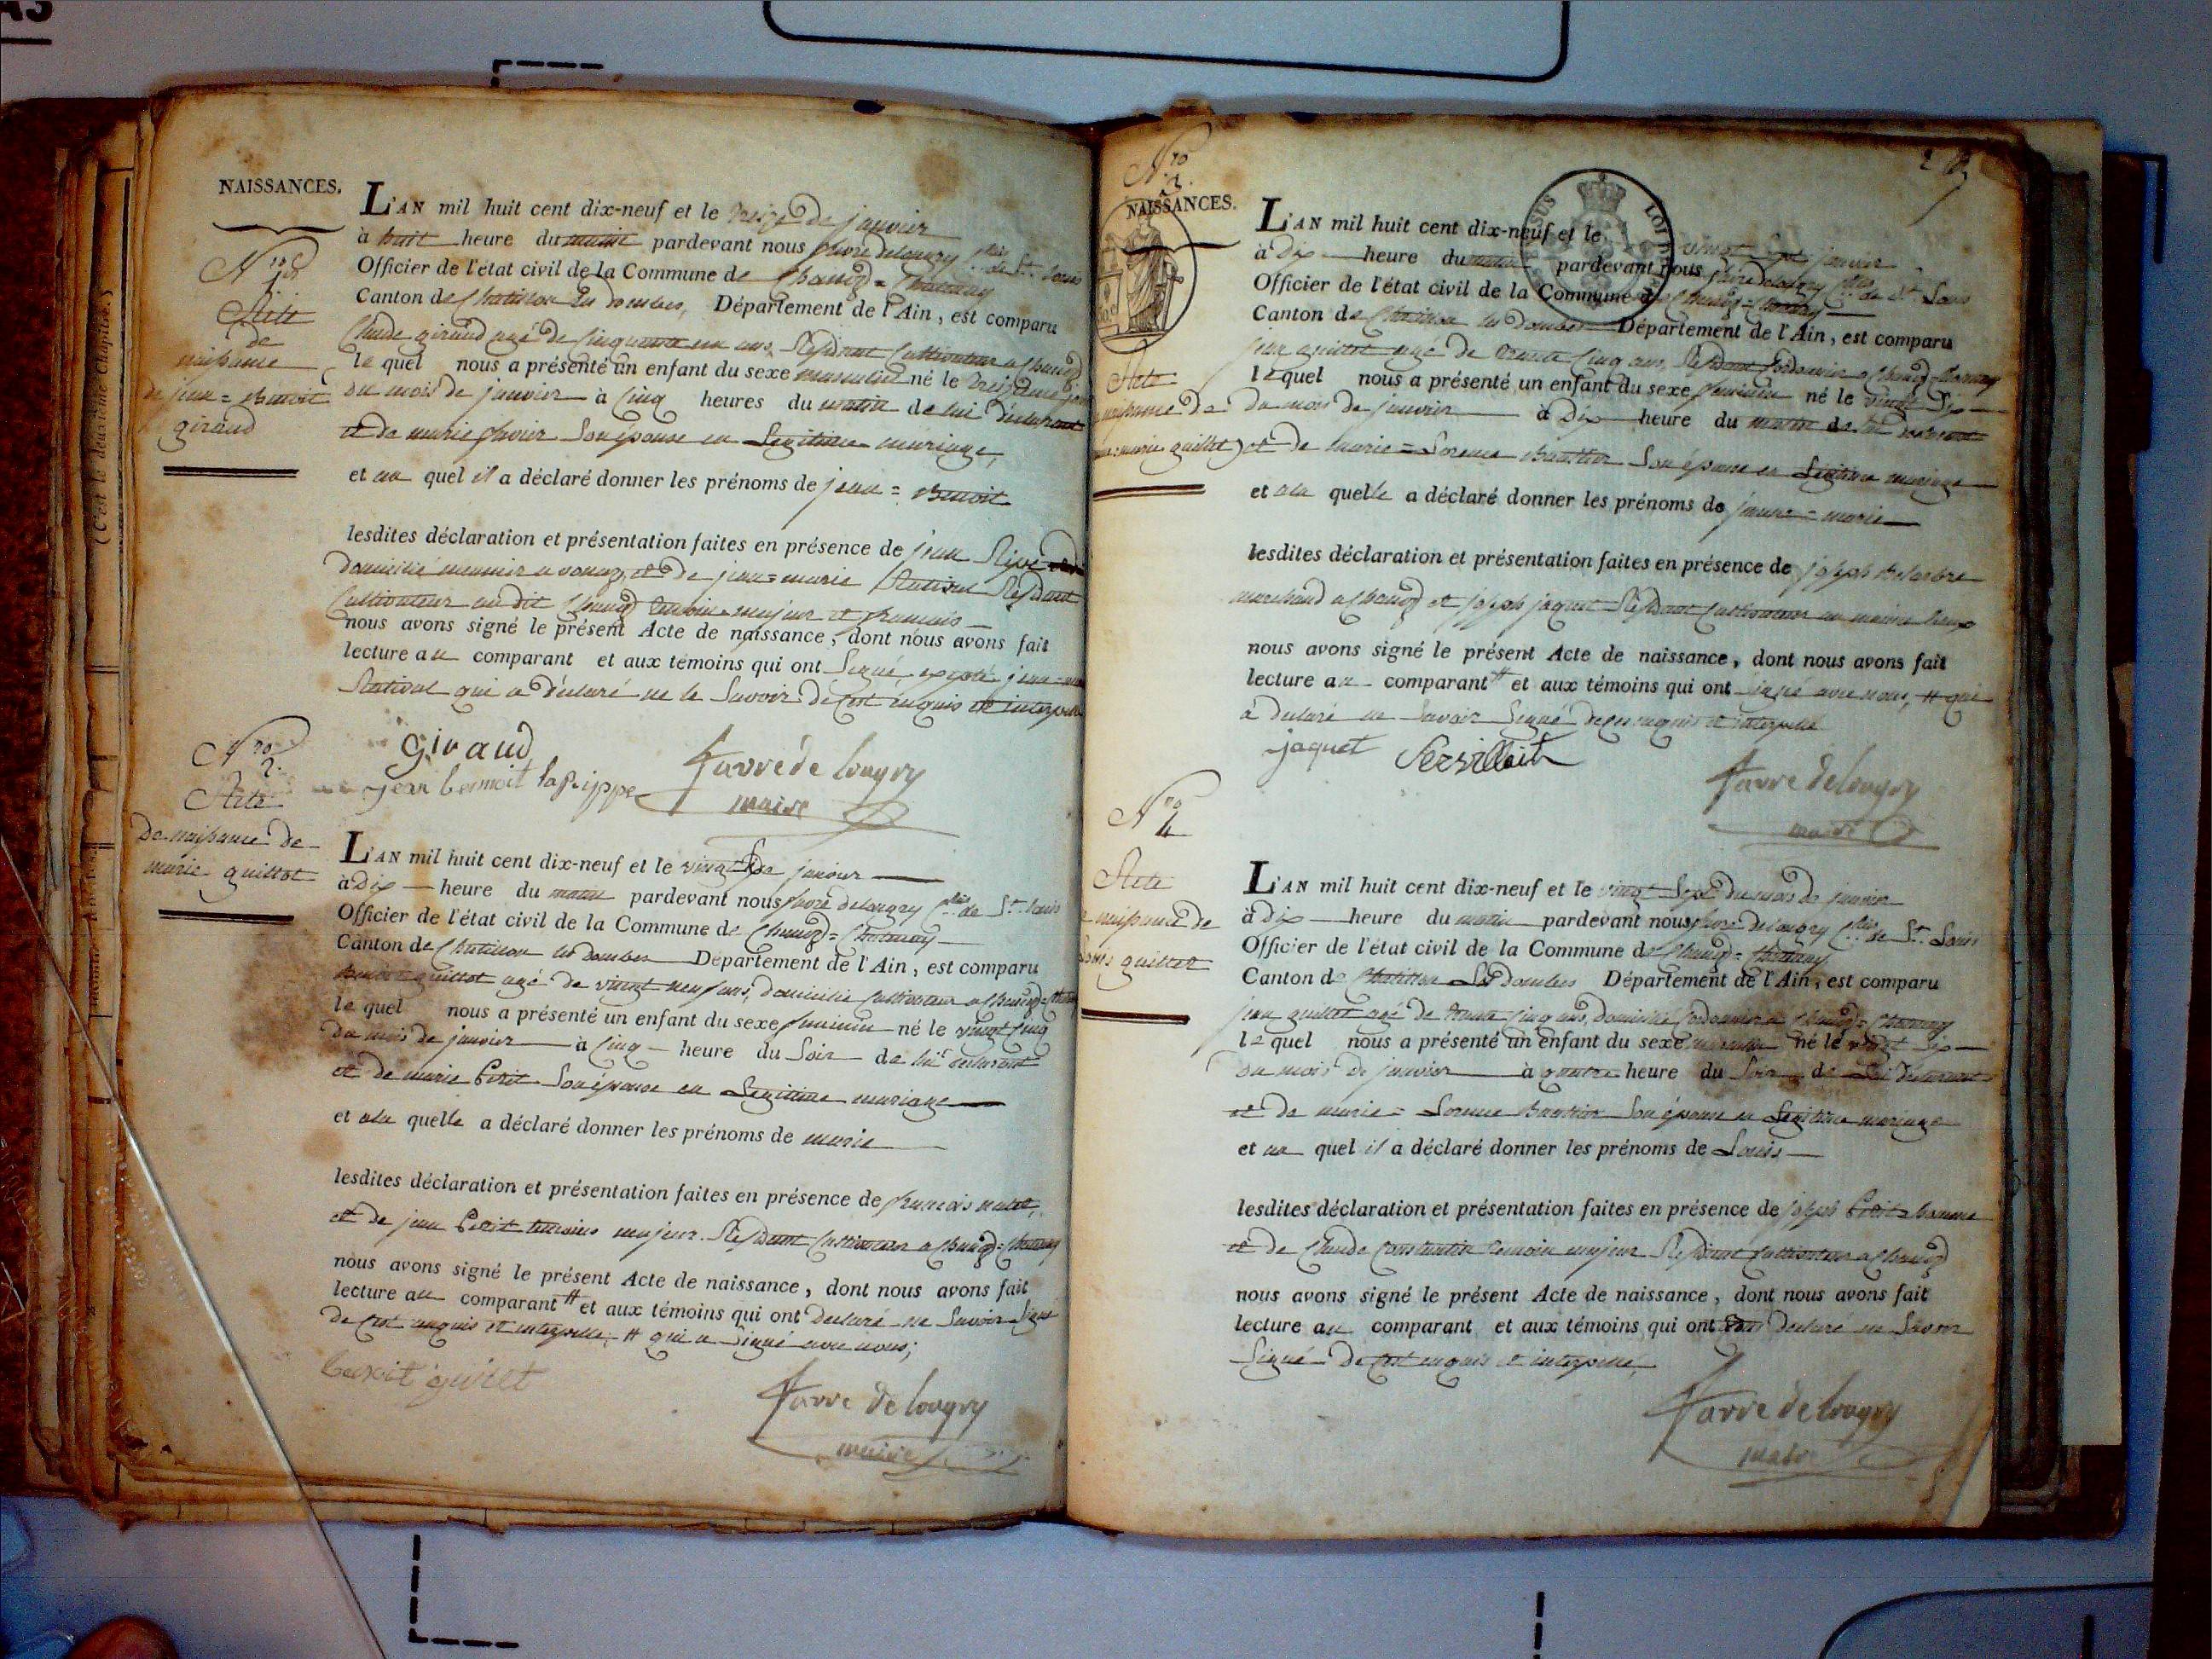 NAISSANCES.
N.ro 1.er
Acte
de
naissance
de jean = Benoit
giraud
L'AN mil huit cent dix-neuf et le treize de janvier
à huit heure du matin pardevant nous favre delongry ch.lier de St. Louis
Officier de l'état civil de la Commune de Chanoz = Chatenay
Canton de Chatillon les dombes, Département de l'Ain, est comparu
Claude giraud agé de cinquante un ans, Résidant Cultivateur a Chanoz
le quel nous a présenté un enfant du sexe masculin né le treizieme jour
du mois de janvier à cinq heures du matin de lui déclarant
et de marie favier son épouse en Légitime mariage,
et au quel il a déclaré donner les prénoms de jean = Benoit
lesdites déclaration et présentation faites en présence de jean
domicilié meunier a vonnaz, et de jean = marie Résidant
Cultivateur au dit Chanoz temoins majeur et francais
nous avons signé le présent Acte de naissance, dont nous avons fait
lecture au comparant et aux témoins qui ont Signé, excepté jean
qui a déclaré ne le Savoir de Cest enquis et interpellé
giraud
jean bennoit laRippe
favre de longry
maire
N.ro 2.
Acte
De naissance de
marie guillot
L'AN mil huit cent dix-neuf et le vingt Six janvier
à dix heure du matin pardevant nous favre delongry ch.lier de St. Louis
Officier de l'état civil de la Commune de Chanoz = Chatenay
Canton de Chatillon les dombes Département de l'Ain, est comparu
Benoit guillot agé de vingt neuf ans, domicilié Cultivateur a Chanoz = Chatenay
le quel nous a présenté un enfant du sexe feminin né le vingt Cinq
du mois de janvier à cinq heure du Soir de lui déclarant
et de marie Petit Son épouse en Legitime mariage
et a la quelle a déclaré donner les prénoms de marie
lesdites déclaration et présentation faites en présence de francois
et de jean Petit temoins majeur Résidant Cultivateur a Chanoz = Chatenay
nous avons signé le présent Acte de naissance, dont nous avons fait
lecture au comparant # et aux témoins qui ont déclaré ne Savoir Signé
de Cest enquis et interpellé, # qui a Signé avec nous;
benoit guilet
favre de longry
maire
N.ro 3.
NAISSANCES.
Acte
naissance de
marie guillot
L'AN mil huit cent dix-neuf et le vingt Sept janvier
à Dix heure du matin pardevant nous favre delongry ch.lier de St. Louis
Officier de l'état civil de la Commune de Chanoz = Chatenay
Canton de Chatillon les dombes Département de l'Ain, est comparu
jean guillot agé de trente Cinq ans, Résidant Cordonnier a Chanoz Chatenay
le quel nous a présenté un enfant du sexe feminin né le vingt Six
du mois de janvier à Dix heure du matin de lui déclarant
et de marie = Lorence Son épouse en Legitime mariage
et a la quelle a déclaré donner les prénoms de jeanne = marie
lesdites déclaration et présentation faites en présence de joseph Delarbre
marchand a Chanoz et joseph jaquet Résidant Cultivateur au même lieux
nous avons signé le présent Acte de naissance, dont nous avons fait
lecture au comparant # et aux témoins qui ont signé avec nous, # qui
a declaré ne Savoir Signé de ces enquis et interpellé
jaquet
favre delongry
maire
N.ro 4
Acte
naissance de
Louis guillot
L'AN mil huit cent dix-neuf et le vingt Sept du mois de janvier
à dix heure du matin pardevant nous favre delongry ch.lier de St. Louis
Officier de l'état civil de la Commune de Chanoz = Chatenay
Canton de Chatillon Les dombes Département de l'Ain, est comparu
jean guillot agé de trente cinq ans, domicilié Cordonnier a Chanoz = Chatenay
le quel nous a présenté un enfant du sexe masculin né le vingt Six
du mois de janvier à quatre heure du Soir de Lui déclarant
et de marie = Lorence Son épouse en Legitime mariage
et au quel il a déclaré donner les prénoms de Louis
lesdites déclaration et présentation faites en présence de joseph Petit = homme
et de Claude Constantin temoin majeur Résidant Cultivateur a Chanoz
nous avons signé le présent Acte de naissance, dont nous avons fait
lecture au comparant et aux témoins qui ont declaré ne Savoir
Signé De Cest enquis et interpellé,
favre de longry
maire